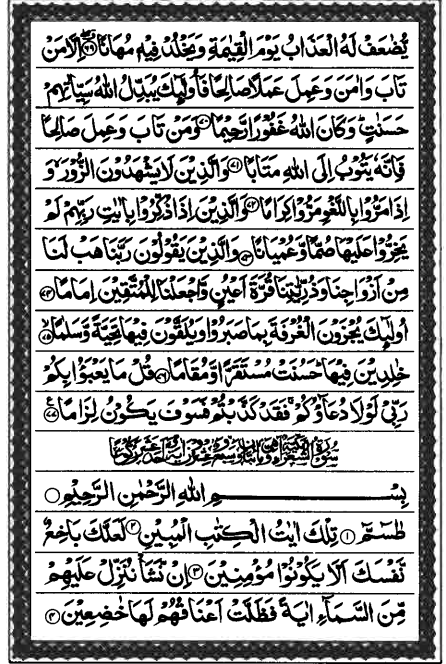 يُّضٰعَفْ لَهُ الْعَذَابُ يَوْمَ الْقِيٰمَةِ وَيَخْلُدْ فِيْهٖ مُهَانًا ﴿۶۹﴾ اِلَّا مَنْ
تَابَ وَاٰمَنَ وَعَمِلَ عَمَلًا صَالِحًا فَاُولٰٓئِكَ يُبَدِّلُ اللّٰهُ سَيِّاٰتِهِمْ
حَسَنٰتٍ ؕ وَكَانَ اللّٰهُ غَفُوْرًا رَّحِيْمًا ﴿۷۰﴾ وَمَنْ تَابَ وَعَمِلَ صَالِحًا
فَاِنَّهٗ يَتُوْبُ اِلَى اللّٰهِ مَتَابًا ﴿۷۱﴾ وَالَّذِيْنَ لَا يَشْهَدُوْنَ الزُّوْرَ ۙ وَ
اِذَا مَرُّوْا بِاللَّغْوِ مَرُّوْا كِرَامًا ﴿۷۲﴾ وَالَّذِيْنَ اِذَا ذُكِّرُوْا بِاٰيٰتِ رَبِّهِمْ لَمْ
يَخِرُّوْا عَلَيْهَا صُمًّا وَّعُمْيَانًا ﴿۷۳﴾ وَالَّذِيْنَ يَقُوْلُوْنَ رَبَّنَا هَبْ لَنَا
مِنْ اَزْوَاجِنَا وَذُرِّيّٰتِنَا قُرَّةَ اَعْيُنٍ وَّاجْعَلْنَا لِلْمُتَّقِيْنَ اِمَامًا ﴿۷۴﴾
اُولٰٓئِكَ يُجْزَوْنَ الْغُرْفَةَ بِمَا صَبَرُوْا وَيُلَقَّوْنَ فِيْهَا تَحِيَّةً وَّسَلٰمًا ﴿۷۵﴾
خٰلِدِيْنَ فِيْهَا ؕ حَسُنَتْ مُسْتَقَرًّا وَّمُقَامًا ﴿۷۶﴾ قُلْ مَا يَعْبَؤُا بِكُمْ
رَبِّيْ لَوْلَا دُعَآؤُكُمْ ۚ فَقَدْ كَذَّبْتُمْ فَسَوْفَ يَكُوْنُ لِزَامًا ﴿۷۷﴾
بِسْمِ اللّٰهِ الرَّحْمٰنِ الرَّحِيْمِ
طٰسٓمّٓ ﴿۱﴾ تِلْكَ اٰيٰتُ الْكِتٰبِ الْمُبِيْنِ ﴿۲﴾ لَعَلَّكَ بَاخِعٌ
نَّفْسَكَ اَلَّا يَكُوْنُوْا مُؤْمِنِيْنَ ﴿۳﴾ اِنْ نَّشَاْ نُنَزِّلْ عَلَيْهِمْ
مِّنَ السَّمَآءِ اٰيَةً فَظَلَّتْ اَعْنَاقُهُمْ لَهَا خٰضِعِيْنَ ﴿۴﴾